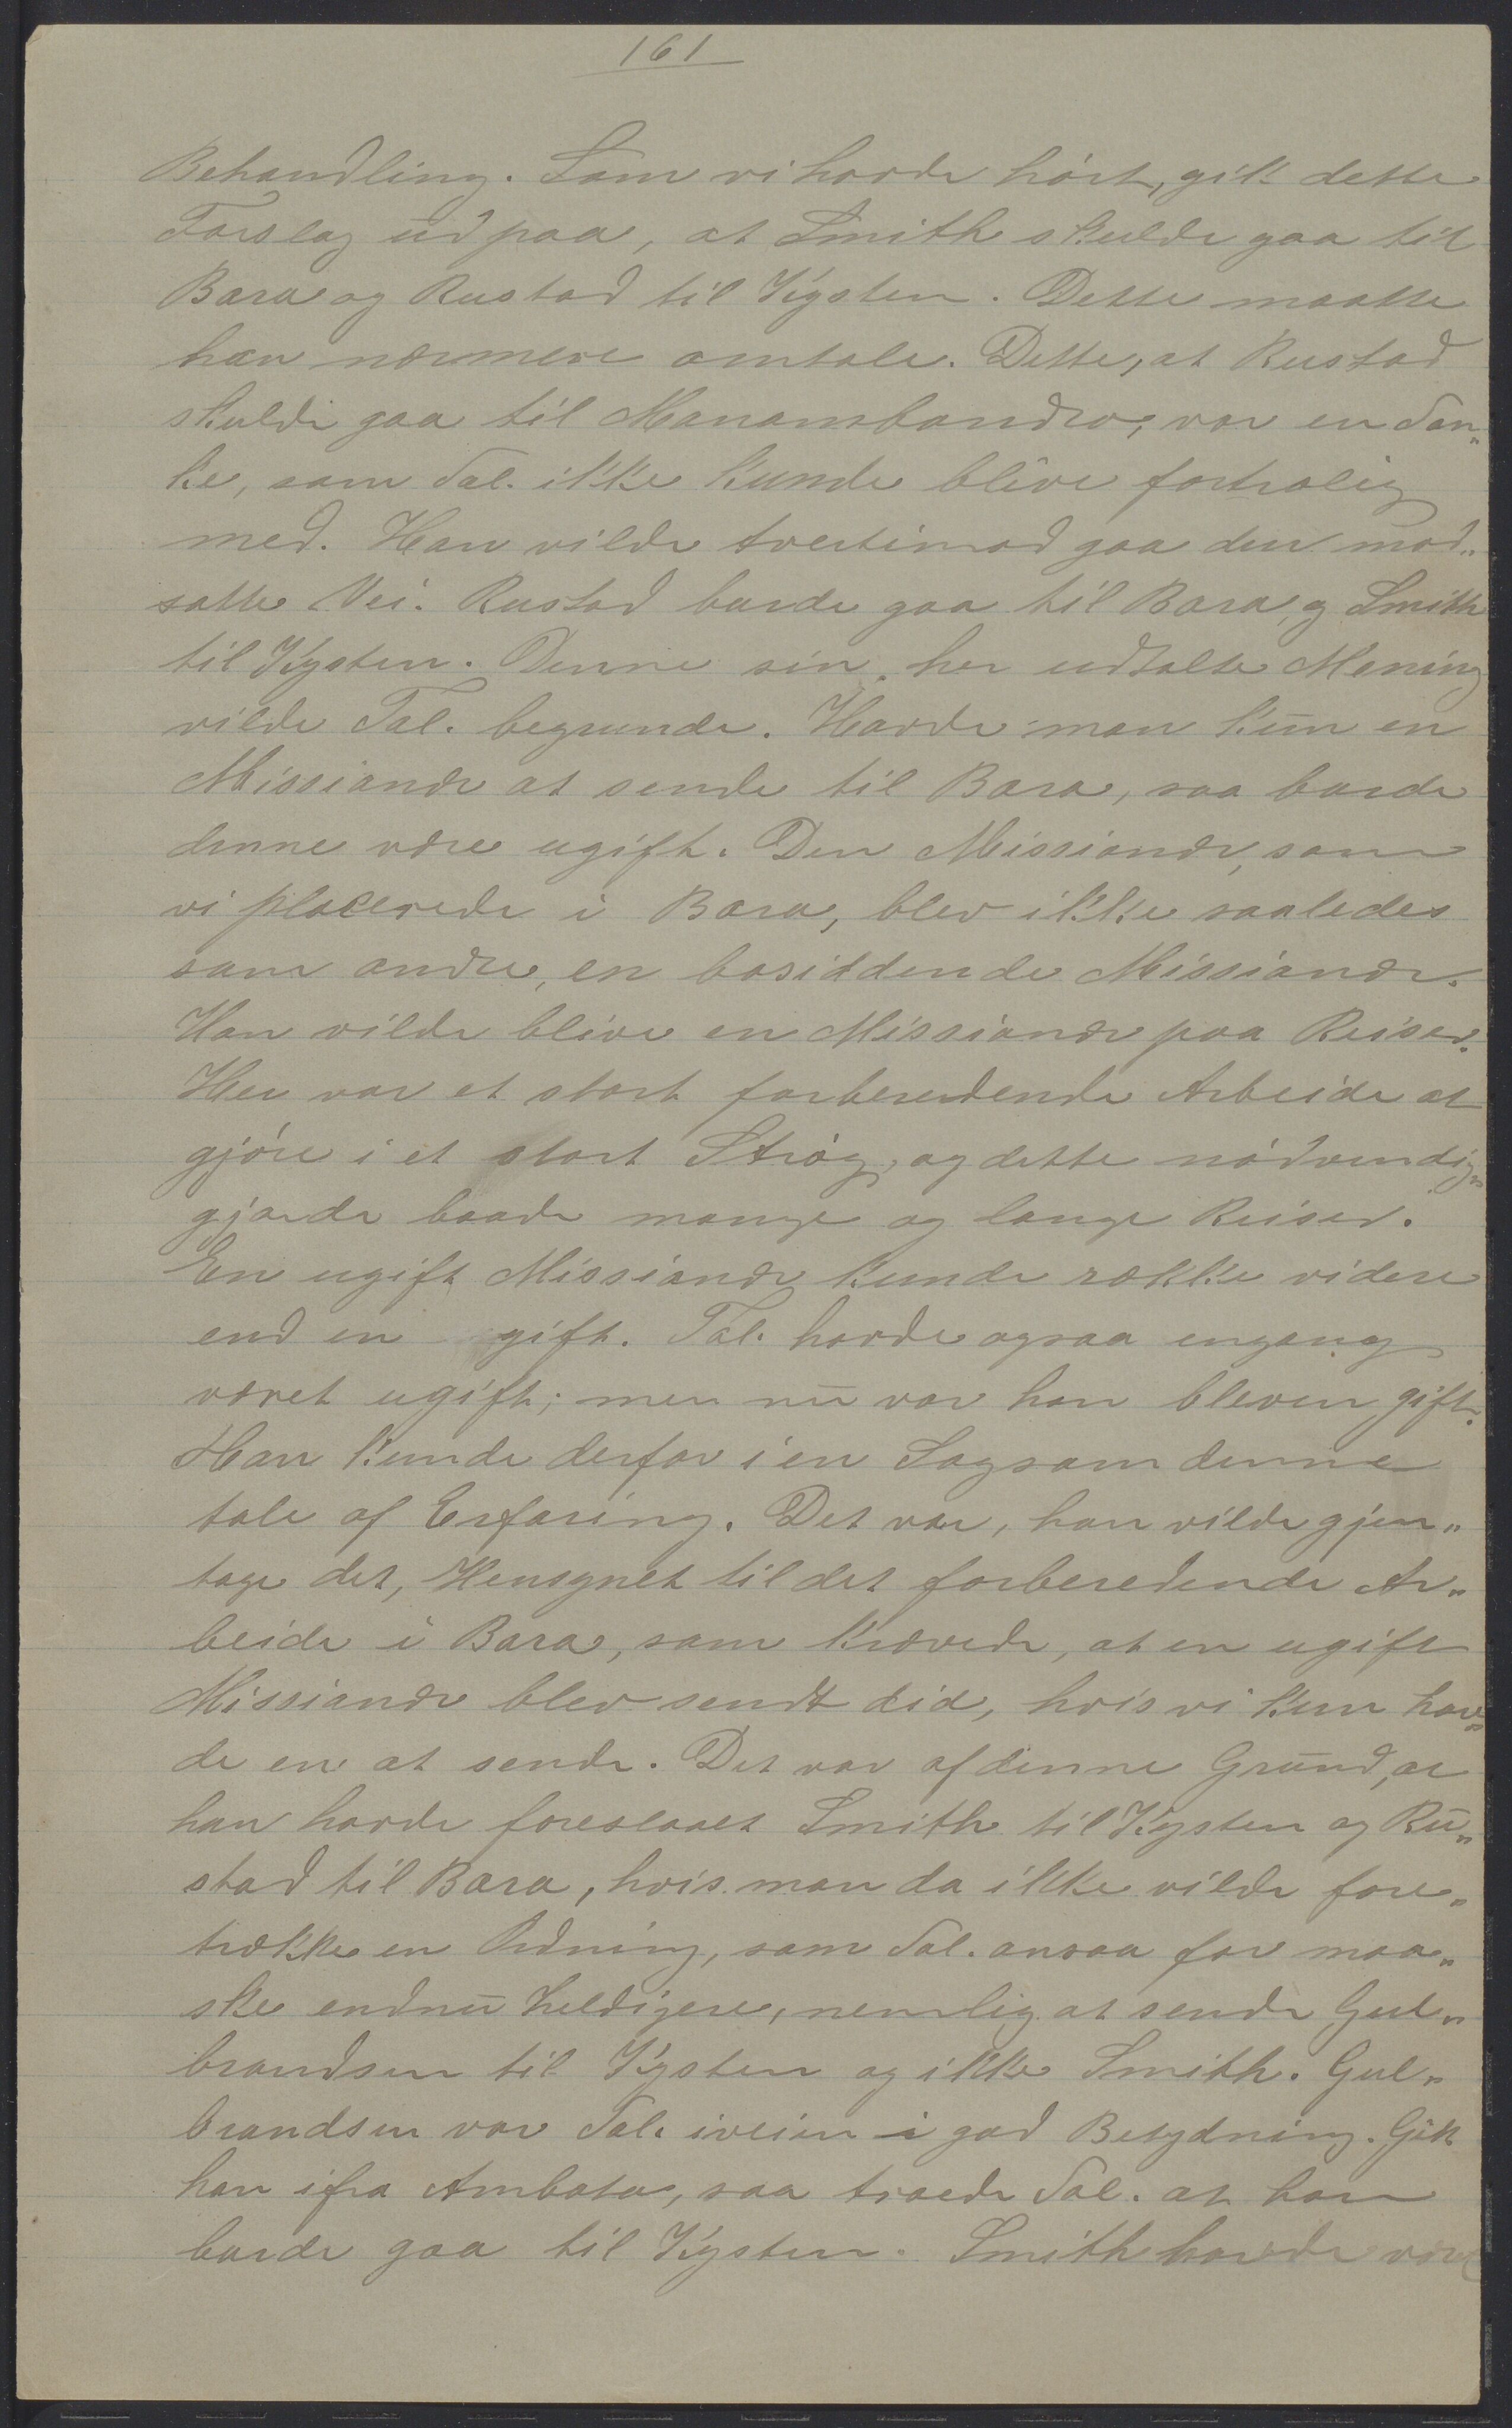 161
Behandling. Som vi havde hört, gik dette
Forslag ud paa, at Smith skulde gaa til
Bara og Rustad til Kysten. Dette maatte
han nærmere omtale. Dette, at Rustad
skulde gaa til Manambondro, var en Tan„
ke, som Tal. ikke kunde blive fortrolig
med. Han vilde tvertimod gaa den mod„
satte Vei. Rustad burde gaa til Bara, og Smith
til Kysten. Denne sin her udtalte Mening
vilde Tal. begrunde. Havde man kun en
Missionær at sende til Bara, saa burde
denne være ugift. Den Missionær, som
vi placerede i Bara, blev ikke saaledes
som andre, en bosiddende Missionær.
Han vilde blive en Missionær paa Reiser.
Her var et stort forberedende Arbeide at
gjöre i et stort Strög, og dette nödvendig„
gjorde baade mange og lange Reiser.
En ugift Missionær kunde række videre
end en gift. Tal. havde ogsaa engang
været ugift; men nu var han bleven gift.
Han kunde derfor i en Sag som denne
tale af Erfaring. Det var, han vilde gjen„
tage det, Hensynet til det forberedende Ar„
beide i Bara, som krævede, at en ugift
Missionær blev sendt did, hvis vi kun hav„
de en at sende. Det var af denne Grund, at
han havde foreslaaet Smith til Kysten og Ru„
stad til Bara, hvis man da ikke vilde fore„
trække en Ordning, som Tal. ansaa for maa„
ske endnu heldigere, nemlig at sende Gul„
brandsen til Kysten og ikke Smith. Gul„
brandsen var Tal. iveien i god Betydning. Gik
han ifra Ambato, saa troede Tal. at han
burde gaa til Kysten. Smith burde være